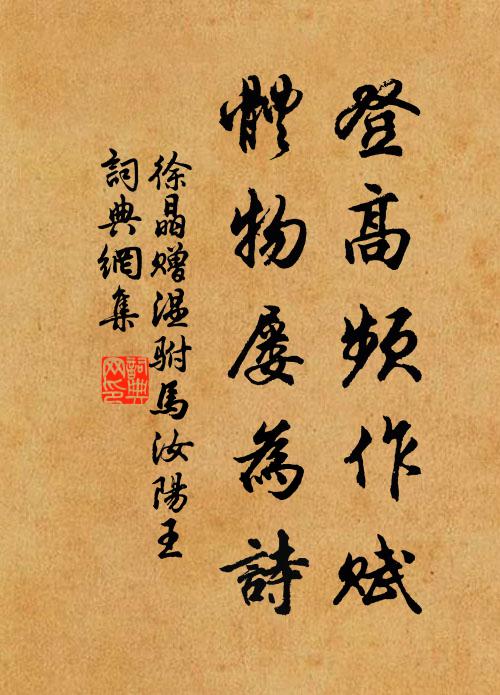 登高頻作賦
體物屢為詩
徐晶贈温駙馬汝陽王
詞典網集
詞典網印